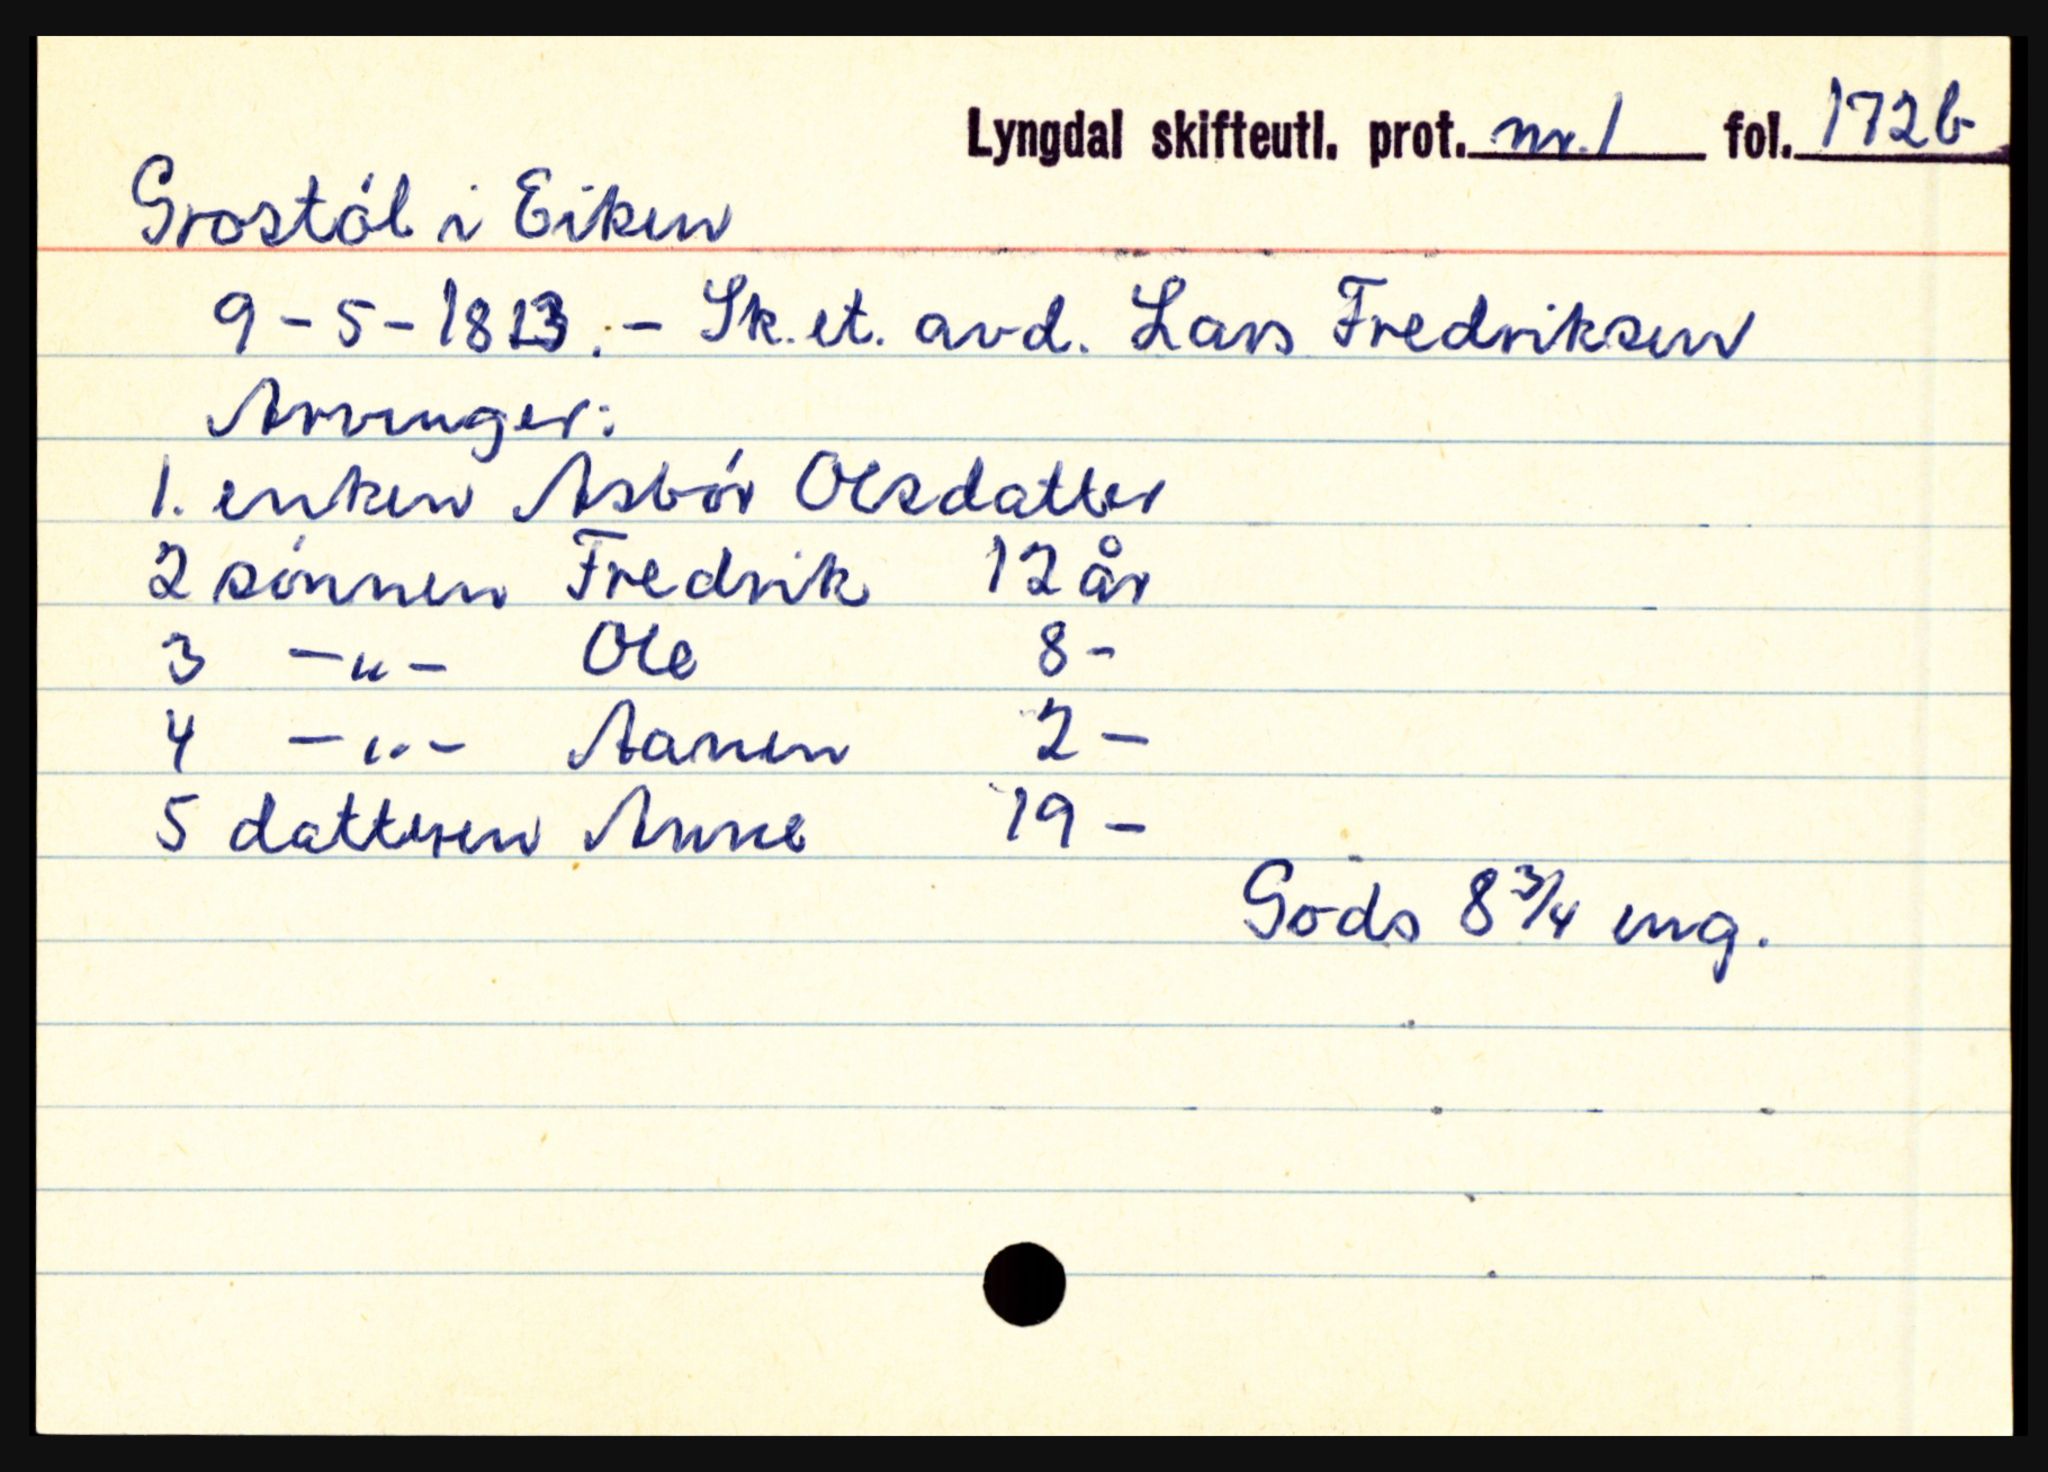 Lyngdal skifteutl. prot. nr. 1 fol. 172b
Grostól i Eiken
9-5-1813. - Sk. et. avd. Lars Fredriksen
Arvinger:
1. enken Asbór Olsdatter
2 sónnen Fredrik 12 år
3 -"- Ole 8-
4 -"- Aanen 2-
5 datteren Anne 19-
Gods 8 3/4 eng.